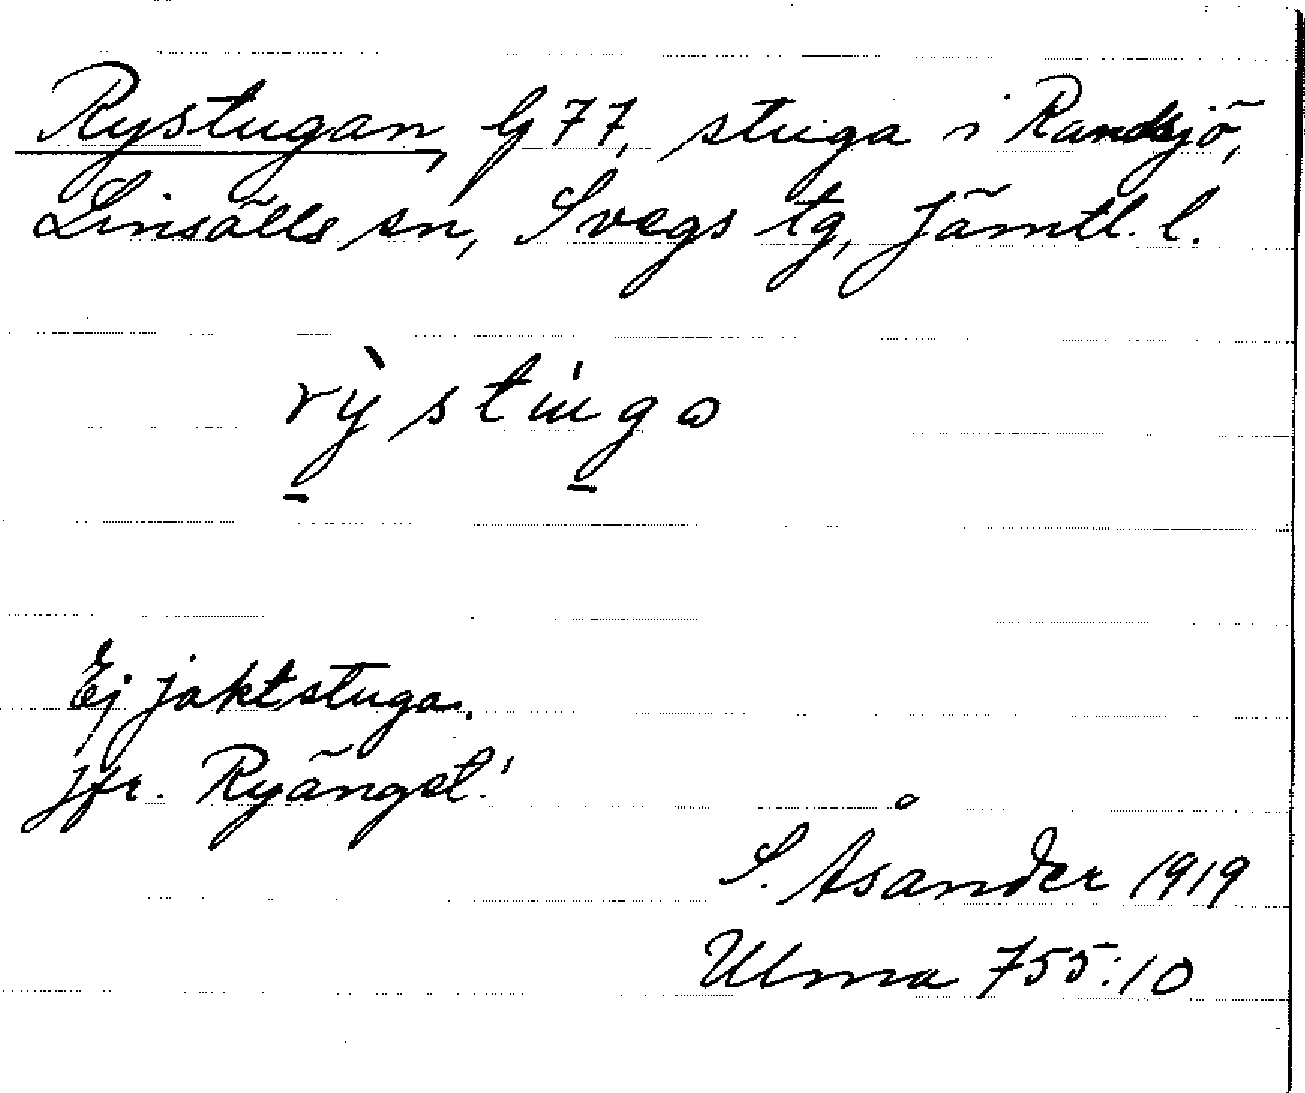 Rystugan, G 77, stuga i Randsjö,
Linsälls sn, Svegs tg, Jämtl. l.
rỳstùgɷ
Ej jaktstuga.
Jfr. Ryänget!
S. Åsander 1919
Ulma 755:10